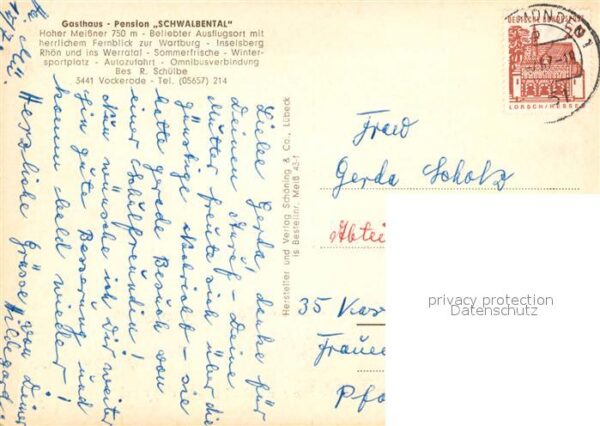 Gasthaus - Pension „SCHWALBENTAL"
Hoher Meißner 750 m - Beliebter Ausflugsort mit
herrlichem Fernblick zur Wartburg - Inselsberg
Rhön und ins Werratal - Sommerfrische - Winter-
sportplatz - Autozufahrt - Omnibusverbindung
Bes R. Schülbe
3441 Vockerode - Tel. (05657) 214
Liebe Gerda, danke für
Deinen Anruf - Deine
Mutter freute sich über die
günstige Nachricht - sie
hatte gerade Besuch von
einer Schulfreundin!
Nun wünsche ich Dir weiter
hin gute Besserung und
komm bald wieder!
Herzliche Grüsse von Deiner
Hildegard.
Hersteller und Verlag Schöning & Co., Lübeck
is Bestellnr. Meiß 43-1
DEUTSCHE BUNDESPOST
LORSCH/HESSEN
Frau
Gerda Scholz
Abtei
35 Kas
Frauen
privacy protection
Datenschutz